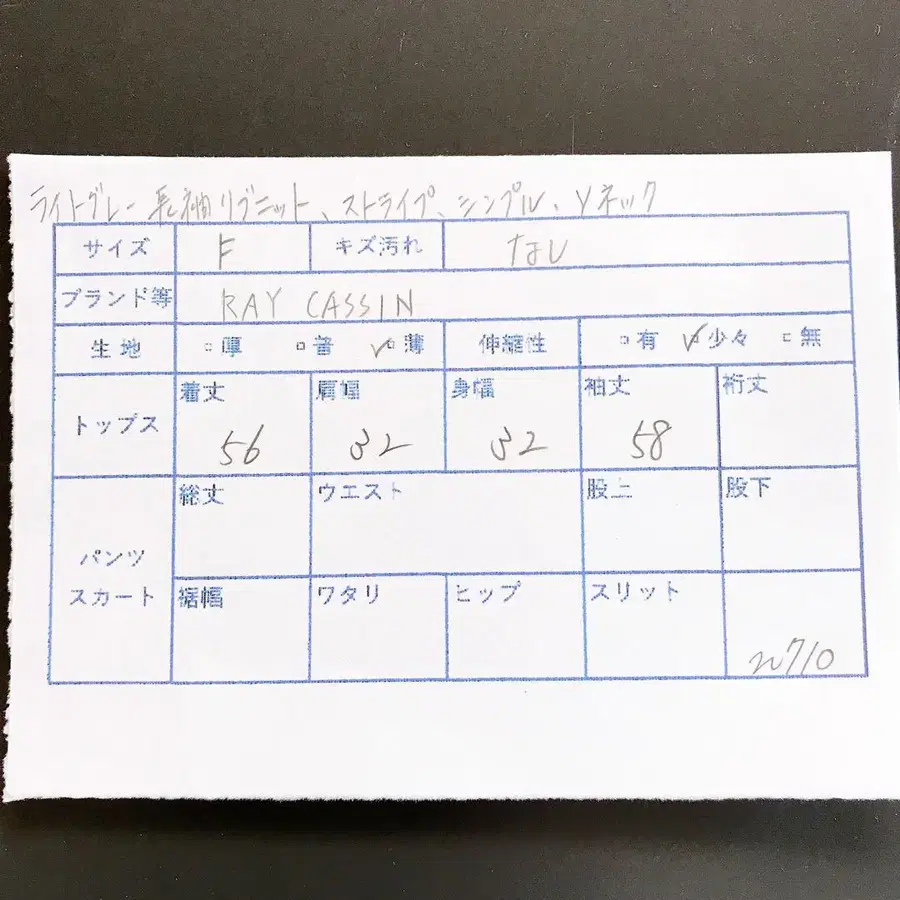 ライトグレー長袖リブニット、ストライプ、シンプル、Vネック
サイズ F キズ汚れ なし
ブランド等 RAY CASSIN
生地 □厚 □普 ✓□薄 伸縮性 □有 ✓□少々 □無
トップス 着丈 56 肩幅 32 身幅 32 袖丈 58 裄丈
パンツ スカート
総丈 ウエスト 股上 股下
裾幅 ワタリ ヒップ スリット
n710